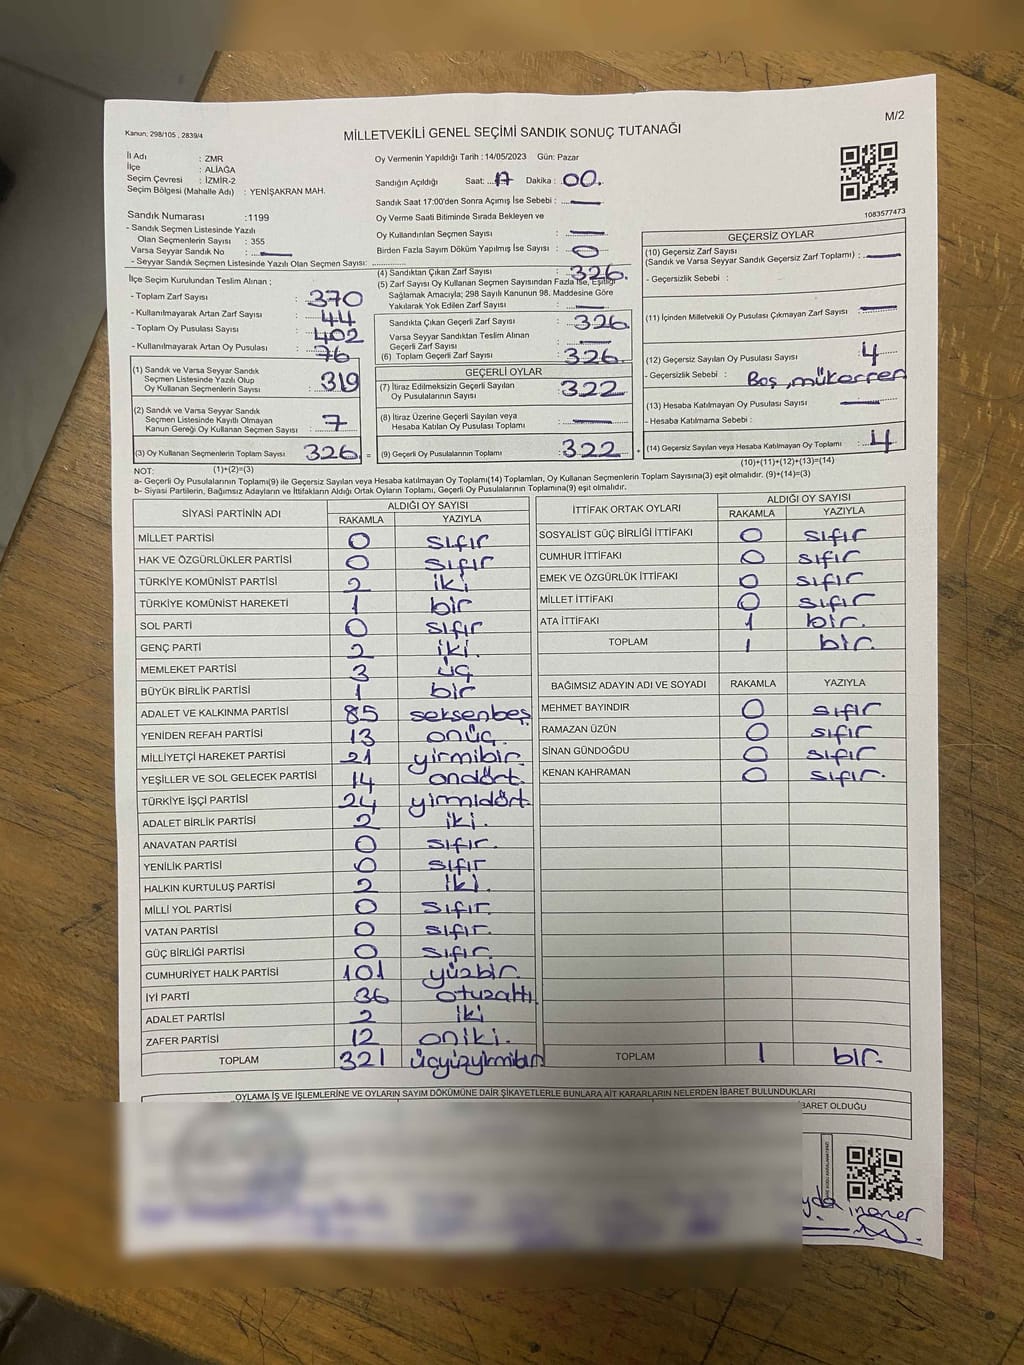 M/2
Kanun; 298/105 , 2839/4
MİLLETVEKİLİ GENEL SEÇİMİ SANDIK SONUÇ TUTANAĞI
İl Adı : ZMR
İlçe : ALİAĞA
Seçim Çevresi : İZMİR-2
Seçim Bölgesi (Mahalle Adı) : YENİŞAKRAN MAH.
Sandık Numarası :1199
- Sandık Seçmen Listesinde Yazılı
Olan Seçmenlerin Sayısı : 355
Varsa Seyyar Sandık No : —
- Seyyar Sandık Seçmen Listesinde Yazılı Olan Seçmen Sayısı:
Oy Vermenin Yapıldığı Tarih : 14/05/2023 Gün: Pazar
Sandığın Açıldığı Saat: 17 Dakika : 00.
Sandık Saat 17:00'den Sonra Açımış İse Sebebi : —
Oy Verme Saati Bitiminde Sırada Bekleyen ve
Oy Kullandırılan Seçmen Sayısı : —
Birden Fazla Sayım Döküm Yapılmış İse Sayısı : 0
1083577473
İlçe Seçim Kurulundan Teslim Alınan ;
- Toplam Zarf Sayısı : 370
- Kullanılmayarak Artan Zarf Sayısı : 44
- Toplam Oy Pusulası Sayısı : 402
- Kullanılmayarak Artan Oy Pusulası : 76
(1) Sandık ve Varsa Seyyar Sandık
Seçmen Listesinde Yazılı Olup
Oy Kullanan Seçmenlerin Sayısı : 319
(2) Sandık ve Varsa Seyyar Sandık
Seçmen Listesinde Kayıtlı Olmayan
Kanun Gereği Oy Kullanan Seçmen Sayısı : 7
(3) Oy Kullanan Seçmenlerin Toplam Sayısı : 326 =
(4) Sandıktan Çıkan Zarf Sayısı : 326.
(5) Zarf Sayısı Oy Kullanan Seçmen Sayısından Fazla İse, Eşitliği
Sağlamak Amacıyla; 298 Sayılı Kanunun 98. Maddesine Göre
Yakılarak Yok Edilen Zarf Sayısı : —
Sandıkta Çıkan Geçerli Zarf Sayısı : 326
Varsa Seyyar Sandıktan Teslim Alınan
Geçerli Zarf Sayısı : —
(6) Toplam Geçerli Zarf Sayısı : 326.
GEÇERLİ OYLAR
(7) İtiraz Edilmeksizin Geçerli Sayılan
Oy Pusulalarının Sayısı : 322
(8) İtiraz Üzerine Geçerli Sayılan veya
Hesaba Katılan Oy Pusulası Toplamı : —
(9) Geçerli Oy Pusulalarının Toplamı : 322 +
GEÇERSİZ OYLAR
(10) Geçersiz Zarf Sayısı
(Sandık ve Varsa Seyyar Sandık Geçersiz Zarf Toplamı) : —
- Geçersizlik Sebebi :
(11) İçinden Milletvekili Oy Pusulası Çıkmayan Zarf Sayısı : —
(12) Geçersiz Sayılan Oy Pusulası Sayısı : 4
- Geçersizlik Sebebi : Boş, mükerrer
(13) Hesaba Katılmayan Oy Pusulası Sayısı : —
- Hesaba Katılmama Sebebi :
(14) Geçersiz Sayılan veya Hesaba Katılmayan Oy Toplamı : 4
NOT: (1)+(2)=(3)
(10)+(11)+(12)+(13)=(14)
a- Geçerli Oy Pusulaları Toplamı(9) ile Geçersiz Sayılan veya Hesaba katılmayan Oy Toplamı(14) Toplamları, Oy Kullanan Seçmenlerin Toplam Sayısına(3) eşit olmalıdır. (9)+(14)=(3)
b- Siyasi Partilerin, Bağımsız Adayların ve İttifakların Aldığı Ortak Oyların Toplamı, Geçerli Oy Pusulalarının Toplamına(9) eşit olmalıdır.
SİYASİ PARTİNİN ADI ALDIĞI OY SAYISI
RAKAMLA YAZIYLA
MİLLET PARTİSİ 0 sıfır
HAK VE ÖZGÜRLÜKLER PARTİSİ 0 sıfır
TÜRKİYE KOMÜNİST PARTİSİ 2 iki
TÜRKİYE KOMÜNİST HAREKETİ 1 bir
SOL PARTİ 0 sıfır
GENÇ PARTİ 2 iki.
MEMLEKET PARTİSİ 3 üç
BÜYÜK BİRLİK PARTİSİ 1 bir
ADALET VE KALKINMA PARTİSİ 85 seksenbeş
YENİDEN REFAH PARTİSİ 13 onüç.
MİLLİYETÇİ HAREKET PARTİSİ 21 yirmibir.
YEŞİLLER VE SOL GELECEK PARTİSİ 14 ondört.
TÜRKİYE İŞÇİ PARTİSİ 24 yirmidört.
ADALET BİRLİK PARTİSİ 2 iki.
ANAVATAN PARTİSİ 0 sıfır.
YENİLİK PARTİSİ 0 sıfır
HALKIN KURTULUŞ PARTİSİ 2 iki.
MİLLİ YOL PARTİSİ 0 sıfır.
VATAN PARTİSİ 0 sıfır.
GÜÇ BİRLİĞİ PARTİSİ 0 sıfır.
CUMHURİYET HALK PARTİSİ 101 yüzbir.
İYİ PARTİ 36 otuzaltı
ADALET PARTİSİ 2 iki
ZAFER PARTİSİ 12 oniki.
TOPLAM 321 üçyüzyirmibir
İTTİFAK ORTAK OYLARI ALDIĞI OY SAYISI
RAKAMLA YAZIYLA
SOSYALİST GÜÇ BİRLİĞİ İTTİFAKI 0 sıfır
CUMHUR İTTİFAKI 0 sıfır
EMEK VE ÖZGÜRLÜK İTTİFAKI 0 sıfır
MİLLET İTTİFAKI 0 sıfır
ATA İTTİFAKI 1 bir.
TOPLAM 1 bir.
BAĞIMSIZ ADAYIN ADI VE SOYADI RAKAMLA YAZIYLA
MEHMET BAYINDIR 0 sıfır
RAMAZAN ÜZÜN 0 sıfır
SİNAN GÜNDOĞDU 0 sıfır
KENAN KAHRAMAN 0 sıfır.
TOPLAM 1 bir.
OYLAMA İŞ VE İŞLEMLERİNE VE OYLARIN SAYIM DÖKÜMÜNE DAİR ŞİKAYETLERLE BUNLARA AİT KARARLARIN NELERDEN İBARET BULUNDUKLARI
BARET OLDUĞU
yda inaner